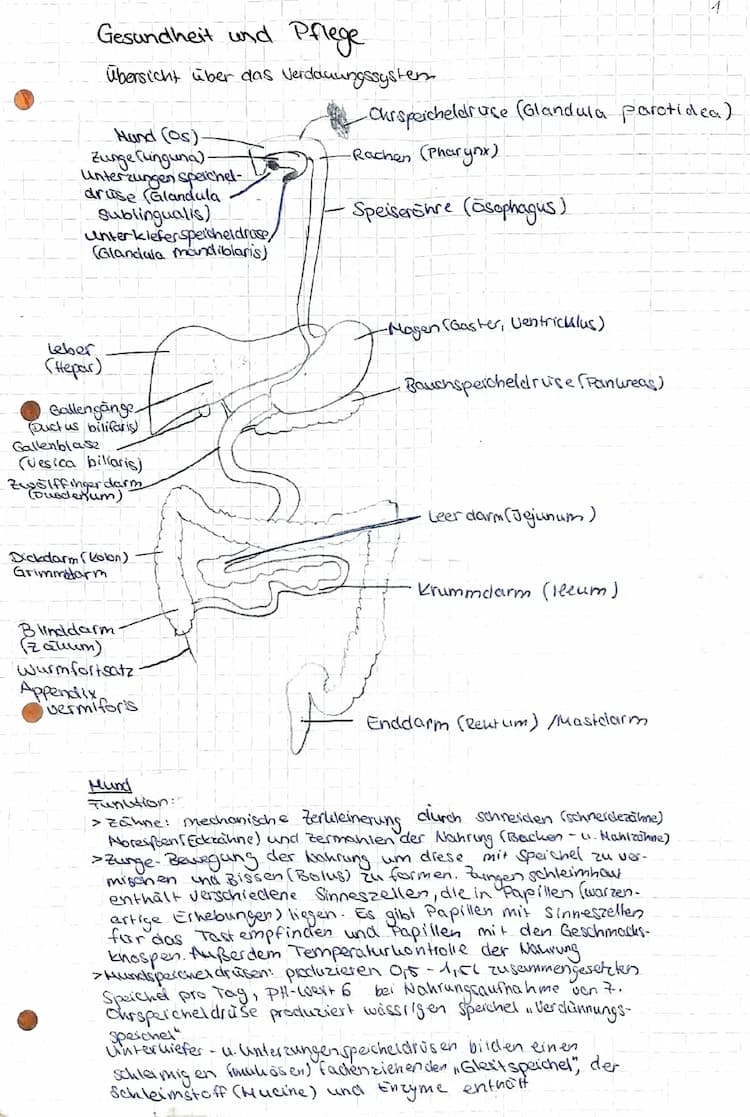 1
Gesundheit und Pflege
Übersicht über das Verdauungssystem
Ohrspeicheldrüse (Glandula parotidea)
Mund (Os)
Zunge (Linguna)
Unterzungenspeichel-
drüse (Glandula
sublingualis)
Unterkieferspeicheldrüse
(Glandula mandiblaris)
Rachen (Pharynx)
Speiseröhre (Ösophagus)
Magen (Gaster, Ventricklus)
Leber
(Hepar)
Bauchspeicheldrüse (Pankreas)
Gallengänge
(Ductus bilifaris)
Gallenblase
(Vesica biliaris)
Zwölffingerdarm
(Duodenum)
Leerdarm (Jejunum)
Dickdarm (Kolon)
Grimmdarm
Krummdarm (Ileum)
Blinddarm
(Zäkum)
Wurmfortsatz
Appendix
vermiforis
Enddarm (Rektum) /Mastdarm
Mund
Funktion:
> Zähne: mechanische Zerkleinerung durch schneiden (Schneidezähne)
Abreißen (Eckzähne) und zermahlen der Nahrung (Backen- u. Mahlzähne)
> Zunge - Bewegung der Nahrung um diese mit Speichel zu ver-
mischen und Bissen (Bolus) zu formen. Zungenschleimhaut
enthält verschiedene Sinneszellen, die in Papillen (warzen-
artige Erhebungen) liegen. Es gibt Papillen mit Sinneszellen
für das Tastempfinden und Papillen mit den Geschmacks-
knospen. Außerdem Temperaturkontrolle der Nahrung
> Mundspeicheldrüsen: produzieren 0,5 - 1,5L zusammengesetzten
Speichel pro Tag, PH-Wert 6 bei Nahrungsaufnahme von 7.
Ohrspeicheldrüse produziert wässrigen Speichel „Verdünnungs-
speichel"
Unterkiefer - u. Unterzungenspeicheldrüsen bilden einen
schleimigen (mukösen) fadenziehenden „Gleitspeichel", der
Schleimstoff (Mucine) und Enzyme enthält